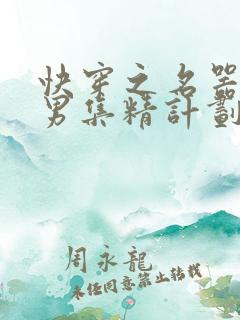 快穿之名器
男集精計劃
周永龍
未经同意禁止转载